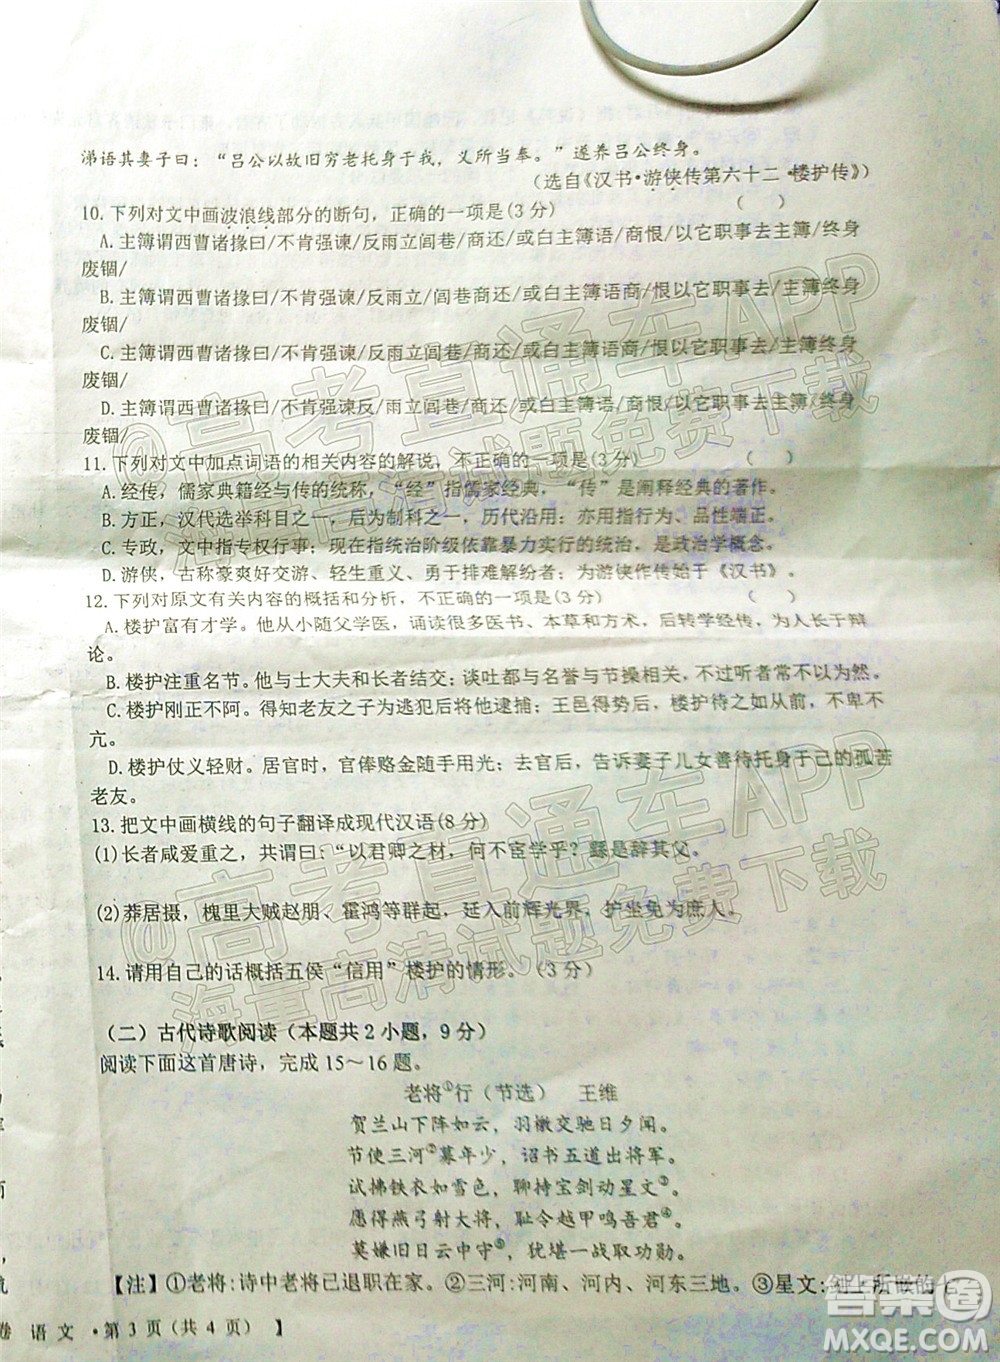 涕语其妻子曰：“吕公以故旧穷老托身于我，义所当奉。”遂养吕公终身。
（选自《汉书·游侠传第六十二·楼护传》）
10.下列对文中画波浪线部分的断句，正确的一项是(3分)（　）
A.主簿谓西曹诸掾曰/不肯强谏/反雨立闾巷/商还/或白主簿语/商恨/以它职事去主簿/终身
废锢/
B.主簿谓西曹诸掾曰/不肯强谏/反雨立闾巷商还/或白主簿语商/恨以它职事去/主簿终身
废锢/
C.主簿谓西曹诸掾曰/不肯强谏/反雨立闾巷/商还/或白主簿语商/恨以它职事去/主簿终身
废锢/
D.主簿谓西曹诸掾曰/不肯强谏反雨立闾巷/商还/或白主簿语/商恨/以它职事去主簿/终身
废锢/
11.下列对文中加点词语的相关内容的解说，不正确的一项是(3分)（　）
A.经传，儒家典籍经与传的统称，“经”指儒家经典，“传”是阐释经典的著作。
B.方正，汉代选举科目之一，后为制科之一，历代沿用；亦用指行为、品性端正。
C.专政，文中指专权行事；现在指统治阶级依靠暴力实行的统治，是政治学概念。
D.游侠，古称豪爽好交游、轻生重义、勇于排难解纷者；为游侠作传始于《汉书》。
12.下列对原文有关内容的概括和分析，不正确的一项是(3分)（　）
A.楼护富有才学。他从小随父学医，诵读很多医书、本草和方术，后学经传，为人长于辩
论。
B.楼护注重名节。他与士大夫和长者结交；谈吐都与名誉与节操有关，不过听者常常不以为然。
C.楼护刚正不阿。得知老友之子成为逃犯后将他逮捕；王邑得势后，楼护待之如常，不卑不
亢。
D.楼护仗义轻财。居官时，官俸赂金随手用光；去官后，告诉妻子儿女善待托身于己的孤苦
老友。
13.把文中画横线的句子翻译成现代汉语(8分)
(1)长者咸爱重之，共谓曰：“以君卿之材，何不宦学乎？繇是辞其父。
(2)莽居摄，槐里大贼赵朋、霍鸿等群起，延入前辉光界，护坐免为庶人。
14.请用自己的话概括五侯“信用”楼护的情形。（3分）
（二）古代诗歌阅读（本题共2小题，9分）
阅读下面这首唐诗，完成15～16题。
老将①行（节选）　王维
贺兰山下阵如云，羽檄交驰日夕闻。
节使三河②募年少，诏书五道出将军。
试拂铁衣如雪色，聊持宝剑动星文③。
愿得燕弓射大将，耻令越甲鸣吾君④。
莫嫌旧日云中守⑤，犹堪一战取功勋。
【注】①老将：诗中老将已退职在家。②三河：河南、河内、河东三地。③星文：剑上所嵌的七
卷　语文·第3页（共4页）　】
@高考直通车APP
海量高清试题免费下载
@高考直通车APP
海量高清试题免费下载
答案圈
MXQE.COM